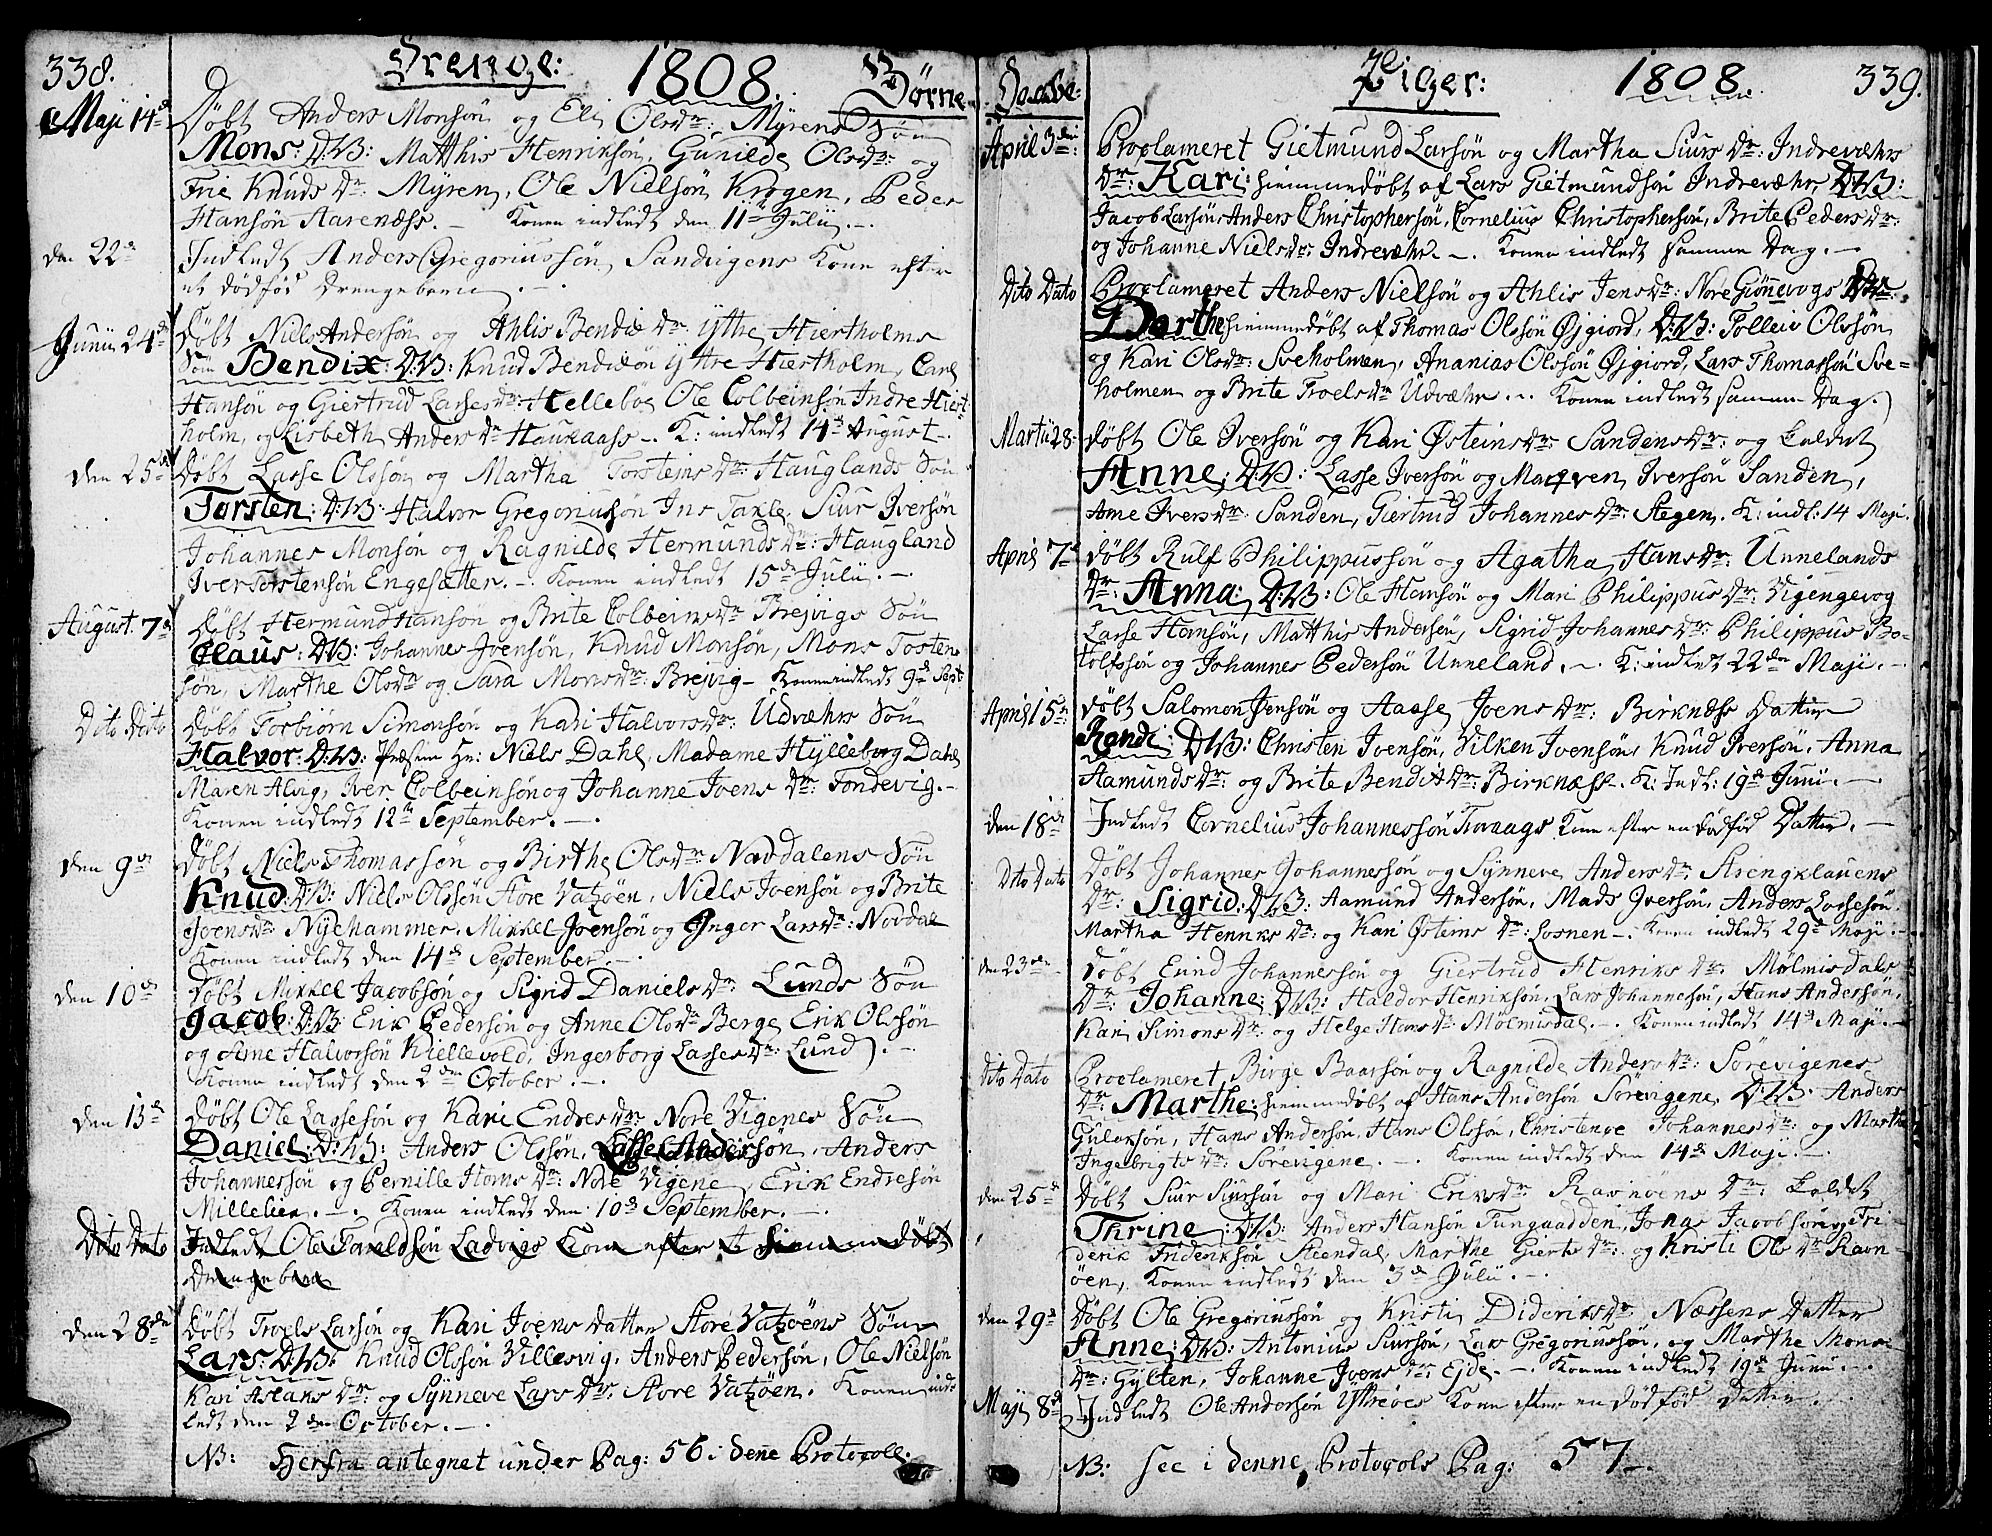 338. Drenge: 1808. Børne
Maji 14de Døbt Anders Monsøn og Eli Olsdr: Myrens Søn
Mons: D:W: Matthis Henriksøn, Gunilde Olsdr: og
Knuds dr: Myren, Ole Nielsøn Krogen, Peder
Hansøn Aarenæss. – Konen indledt den 11te Julii. –
den 22de Indledt Anders Gregoriussøn Sandvigens Kone efter
et dødfød Drengebarn. –
Junii 24de Døbt Niels Andersøn og Ahlis Bendix dr: Ytre Hiertholms
Søn Bendix: D:W: Knud Bendixøn Ytre Hiertholm, Carl
Hansøn og Giertrud Lassesdr: Hellebøe Ole Colbeinsøn Indre Hiert
holm, og Lisbeth Anders dr Haukaass –. K: indledt 14de August –.
den 25de Døbt Lasse Olsøn og Martha Torsteins dr: Hauglands Søn
Torsten: D:W: Halvor Gregoriussøn Takle, Siur Iversøn
Johannes Monsøn og Ragnilde Hermundsdr: Haugland
Iver Torstensøn Engesætter. – Konen indledt 15de Julii. –
August: 7de Døbt Hermund Hansøn og Brite Colbeinsdr Brejvigs Søn
Claus: D:W: Johannes Joensøn, Knud Monsøn, Mons Tosten
søn, Marthe Olsdr og Sara Monsdr: Brejvig – Konen indledt 9de Sept
Dito Dito Døbt Torbiørn Simonsøn og Kari Halvorsdr: Udvæhrs Søn
Halvor: D:W: Hr: Niels Dahl, Madame Hylleborg Dahl
Maren Alvig, Iver Colbeinsøn og Johanne Joens dr: Tondevig. –
Konen indledt 12te September. –
den 9de Døbt Niels Thomassøn og Birthe Olsdr Nordalens Søn
Knud: D:W: Niels Olssøn Store Vatzøen, Niels Joensøn og Brite
Joensdr: Nyehammer, Mikkel Joensøn og Inger Larsdr: Nordal
Konen indledt den 14de September. –
den 10de Døbt Mikkel Jacobsøn og Sigrid Daniels dr: Lunds Søn
Jacob: D:W: Erik Pedersøn og Anne Olsdr Berge, Erik Olssøn
og Arne Halvorsøn Kiellevold, Ingerborg Lassesdr: Lund. –
Konen indledt den 2den October. –
den 13de Døbt Ole Lassesøn og Kari Endresdr: Nore Vigenes Søn
Daniel: D:W: Anders Olssøn, Lasse Andersøn, Anders
Johannessøn og Pernille Hans dr: Nore Vigene, Erik Endresøn
Millelien. – . Konen indledt den 10de September. –
Dito Dato Indledt Ole Ladvigs Kone efter et hiemmedøbt
Drengebarn
den 28de Døbt Troels Larsøn og Kari Joens datter Store Vatzøens Søn
Lars: D:W: Knud Olssøn Villesvig, Anders Pedersøn, Ole Nielsøn
Kari Aslaks dr: og Synneve Lars dr: Store Vatzøen. Konen ind
ledt den 2den October. –
NB: Herfra antegnet under Pag: 56 i denne Protocoll.
Daabe: Piger: 1808. 339.
April 3die: Proclameret Gietmund Larsøn og Martha Siurs dr: Indrevæhrs
dr: Kari: hiemmedøbt af Lars Gietmundsøn Indrevæhr, D:W:
Jacob Larsøn, Anders Christophersøn, Cornelius Christophersøn, Brite Pedersdr:
og Johanne Nielsdr: Indrevæhr. –. Konen indledt samme Dag. –
Dito Dato Proclameret Anders Nielsøn og Ahlis Jensdr: Nore Giønevogs Dr:
Dorthe hiemmedøbt af Thomas Olssøn Øjgiord, D:W: Polleiv Olssøn
og Kari Olsdr: Sveholmen, Ananias Olssøn Øjgiord, Lars Thomassøn Sve=
holmen og Brite Troelsdr Udvæhr. –. Konen indledt samme Dag.
Martii 28: Døbt Ole Iversøn og Kari Østeinsdr: Sandensdr: og kaldet
Anne: D:W: Lasse Iversøn og Iversøn Sanden,
Anne Iversdr: Sanden, Giertrud Johannesdr: Stegen. K: indl: 14 Maji.
April 7de Døbt Rulf Philippussøn og Agatha Hansdr: Unnelands
dr: Anna: D:W: Ole Hansøn og Mari Philippus dr: Vigengevog
Lasse Hansøn, Matthis Andersøn, Sigrid Johannes dr: Philippus Ro-
tolfssøn og Johannes Pedersøn Unneland. –. K: indledt 22den Maji. –
April 15de Døbt Salomon Jensøn og Aasse Joens dr: Birknæss Datter
Randi: D:W: Christen Joensøn, Vilken Joensøn, Knud Iversøn, Anna
Aamundsdr: og Brite Bendix dr: Birknæss –. K: Indl: 19de Junii. –
den 18de Indledt Cornelius Johannessøn Kone efter en dødfød Datter. –
Dito Dato Døbt Johannes Johannessøn og Synneve Anders dr: Strengklauens
dr: Sigrid: D:W: Aamund Andersøn, Mads Iversøn, Anders Lassesøn
Martha Henriks dr: og Kari Østeins dr: Losnen –. Konen indledt 29de Maji. –
den 23de Døbt Eiind Johannessøn og Giertrud Henriks dr: Mølmisdals
dr: Johanne: D:W: Haldor Henriksøn, Lars Johannesøn, Hans Andersøn,
Kari Simons dr: og Helge Hansdr: Mølmisdal. –. Konen indledt 14de Maji. –
Dito Dato Proclameret Birge Baarsøn og Ragnilde Anders dr: Sørevigenes
dr: Marthe: hiemmedøbt af Hans Andersøn Sørevigene, D:W: Anders
Gulaksøn, Hans Andersøn, Hans Olssøn, Christence Johannes dr: og Marthe
Ingebrigts dr: Sørevigene. –. Konen indledt den 14de Maji. –
den 25de Døbt Siur Siursøn og Mari Eriksdr Ravnøens dr: kaldet
Thrine: D:W: Anders Hansøn Tungaadden, Jonas Jacobsøn, Fri-
derik Friderksøn Steendal, Marthe Gierts dr: og Kristi Ols dr Ravn-
øen, Konen indledt den 3de Julii. –
den 29de Døbt Ole Gregoriussøn og Kristi Dideriksdr: Næssens Datter
Anne: D:W: Antonius Siursøn, Lars Gregoriussøn, og Marthe Mons
dr: Gylten, Johanne Joens dr: Ejde –. Konen indledt 19de Junii. –
Maji 8de Indledt Ole Andersøn Ytreøes Kone efter en dødfød Datter. –
NB: See i denne Protocols Pag: 57 –